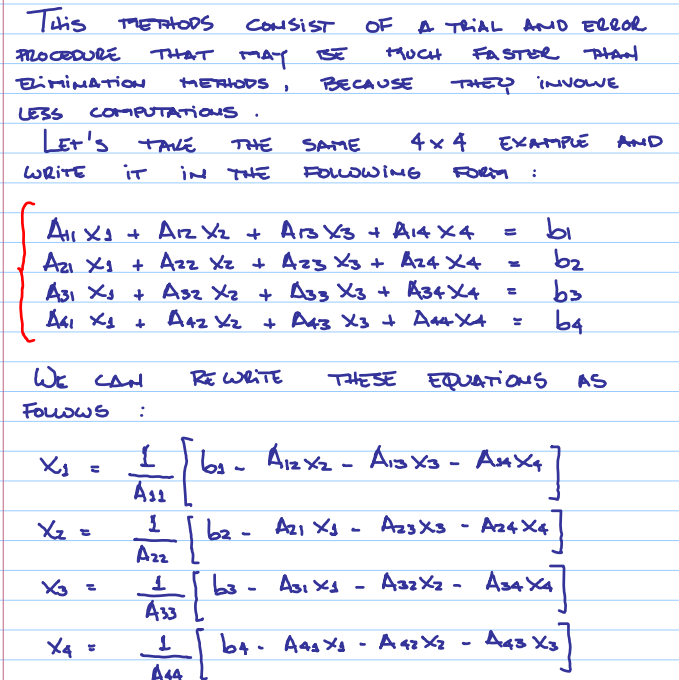 THIS METHODS CONSIST OF A TRIAL AND ERROR
PROCEDURE THAT MAY BE MUCH FASTER THAN
ELIMINATION METHODS, BECAUSE THEY INVOLVE
LESS COMPUTATIONS.
LET'S TAKE THE SAME 4x4 EXAMPLE AND
WRITE IT IN THE FOLLOWING FORM :
A11 X1 + A12 X2 + A13 X3 + A14 X4 = b1
A21 X1 + A22 X2 + A23 X3 + A24 X4 = b2
A31 X1 + A32 X2 + A33 X3 + A34 X4 = b3
A41 X1 + A42 X2 + A43 X3 + A44 X4 = b4
WE CAN REWRITE THESE EQUATIONS AS
FOLLOWS :
X1 = 1/A11 [b1 - A12X2 - A13X3 - A14X4]
X2 = 1/A22 [b2 - A21X1 - A23X3 - A24X4]
X3 = 1/A33 [b3 - A31X1 - A32X2 - A34X4]
X4 = 1/A44 [b4 - A41X1 - A42X2 - A43X3]